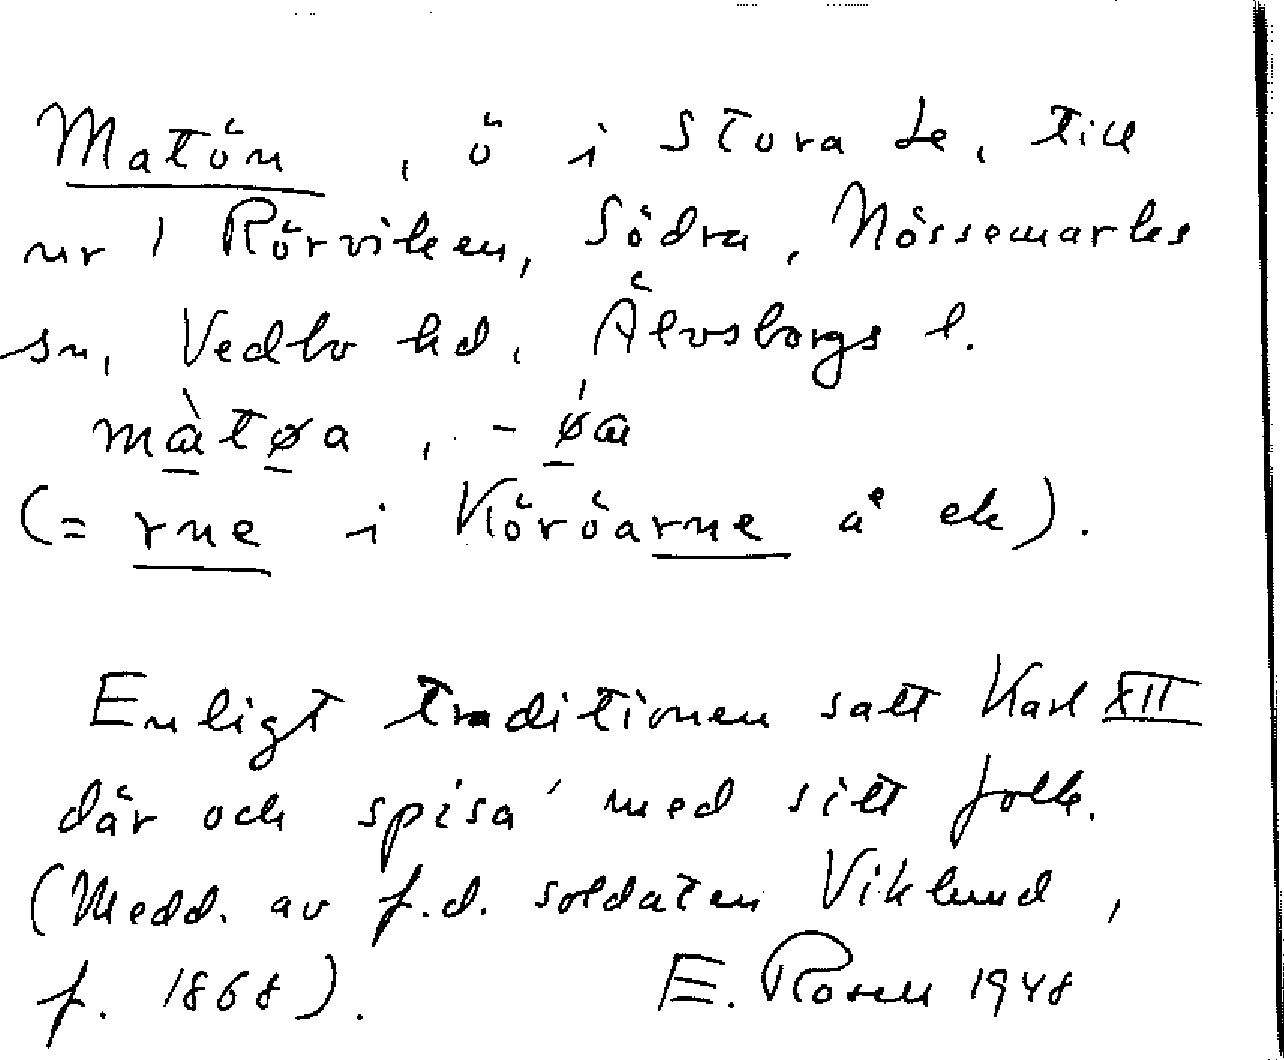 Matön, ö i Stora Le, till
nr 1 Rörviken, Södra, Nössemarks
sn, Vedbo hd, Älvsborgs l.
màtøa, -øa
(= rne i Köröarne å ek).
Enligt traditionen satt Karl XII
där och spisa' med sitt folk.
(Medd. av f.d. soldaten Viklund,
f. 1868). E. Rosell 1948